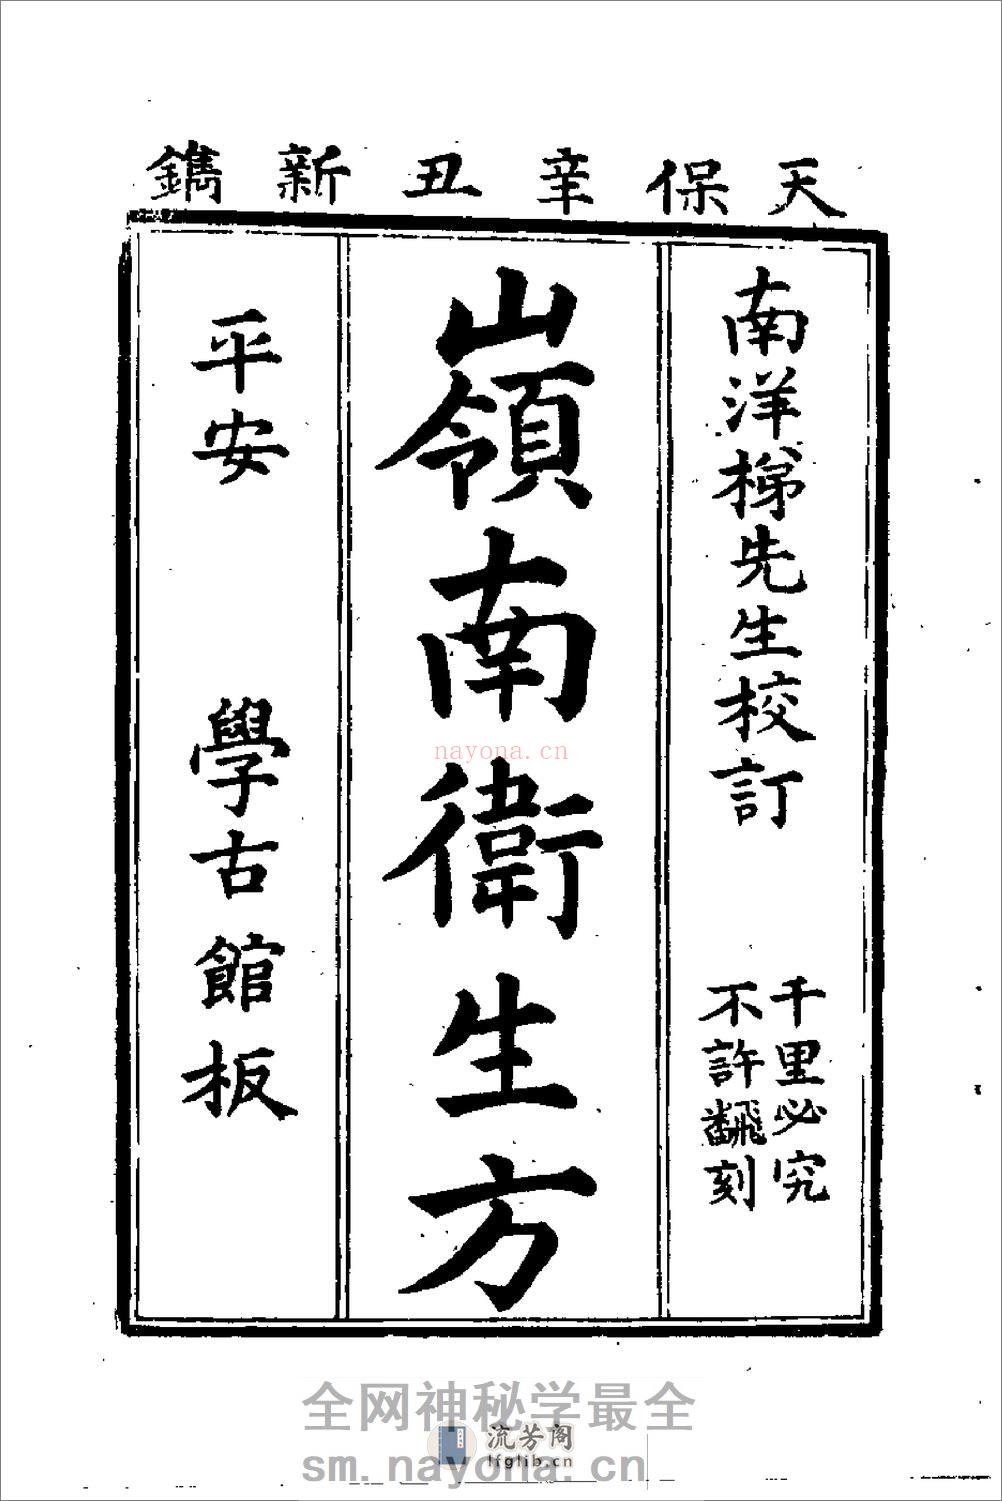 天保辛丑新鐫
南洋梯先生校訂
千里必究
不許飜刻
嶺南衛生方
平安 學古館板
nayona.cn
全网神秘学最全
流芳阁
lfglib.cn
sm.nayona.cn